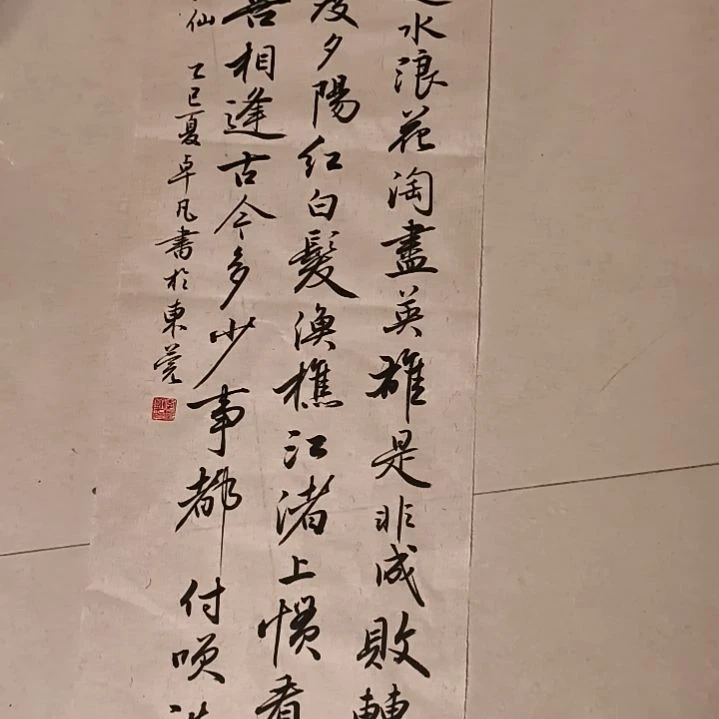 水浪花淘盡英雄是非成敗轉
度夕陽紅白髮漁樵江渚上慣看
喜相逢古今多少事都付嘆
仙 乙巳夏卓凡書於東莞